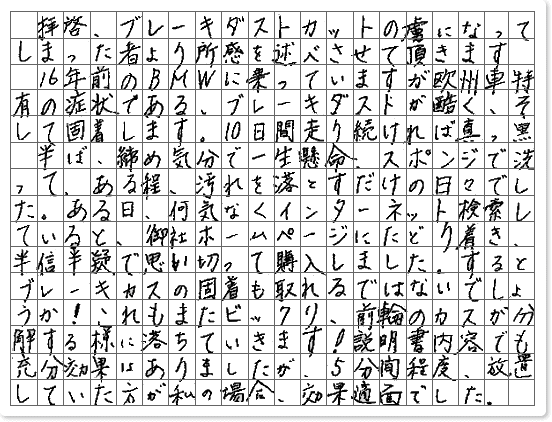 拝啓、ブレーキダストカットの虜になって
しまった者より所感を述べさせて頂きます
16年前のBMWに乗っていますが欧州車特
有の症状である、ブレーキダストが酷く、そ
して固着します。10日間走り続ければ真っ黒
半ば、諦め気分で一生懸命、スポンジで洗
って、ある程、汚れを落とすだけの日々でし
た。ある日、何気なくインターネット検索し
ていると、御社ホームページにたどり着き
半信半疑で思い切って購入しました。すると
ブレーキカスの固着も取れるではないでしょ
うか!これもまたビックリ、前輪のカスが分
解する様に落ちていきます!説明書内容でも
充分効果はありましたが、5分間程度、放置
していた方が私の場合、効果適面でした。